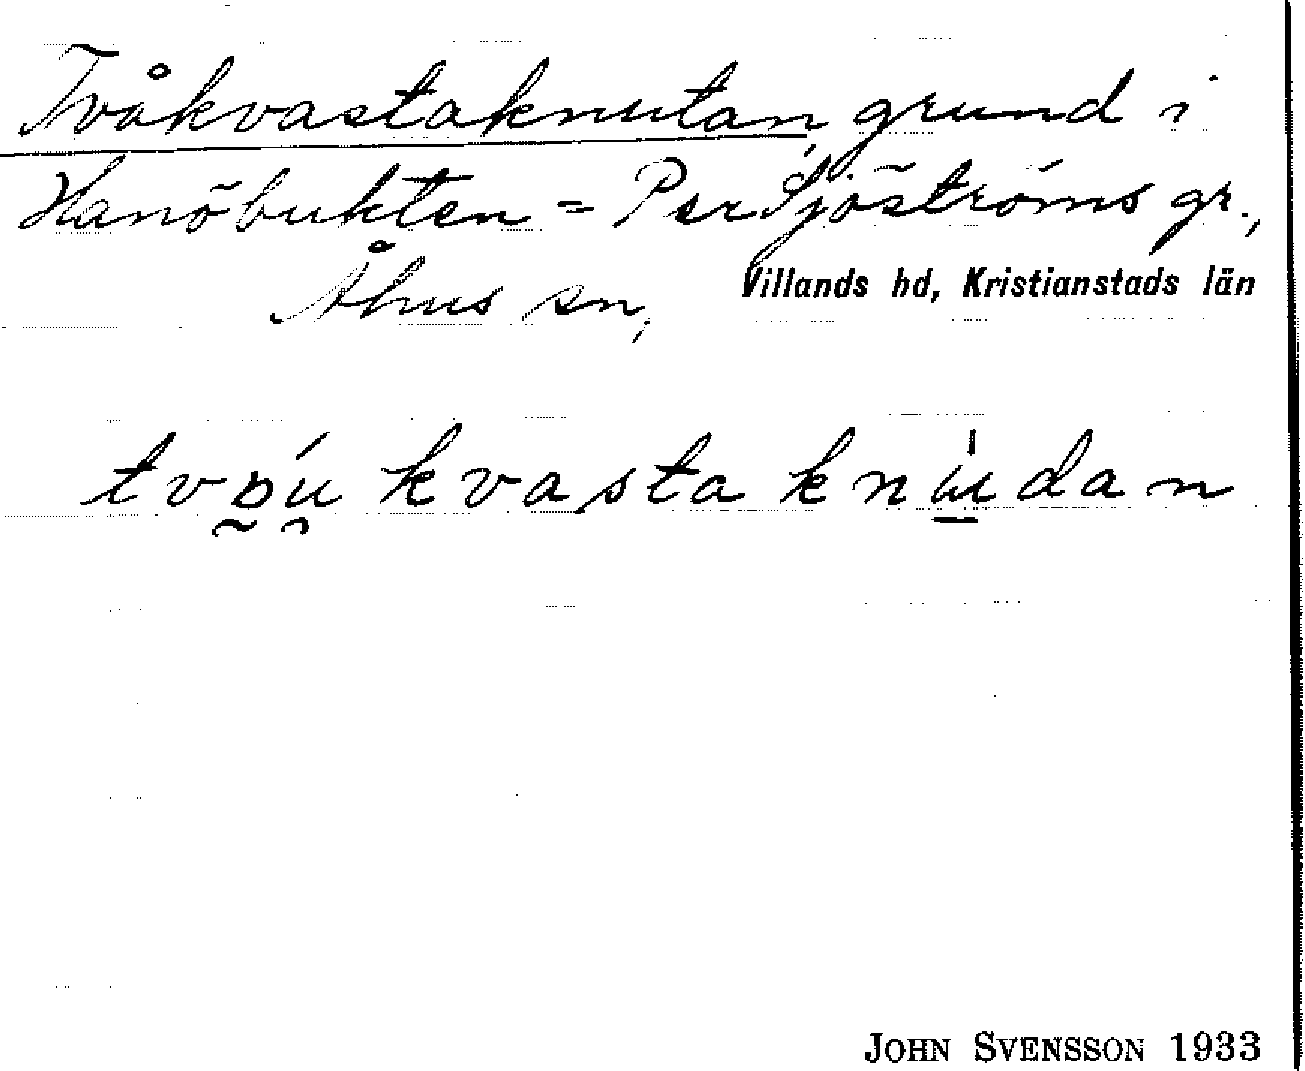 Tvåkvastaknutan, grund i
Hanöbukten = Per Sjöströms gr.,
Åhus sn, Villands hd, Kristianstads län
kvasta
JOHN SVENSSON 1933